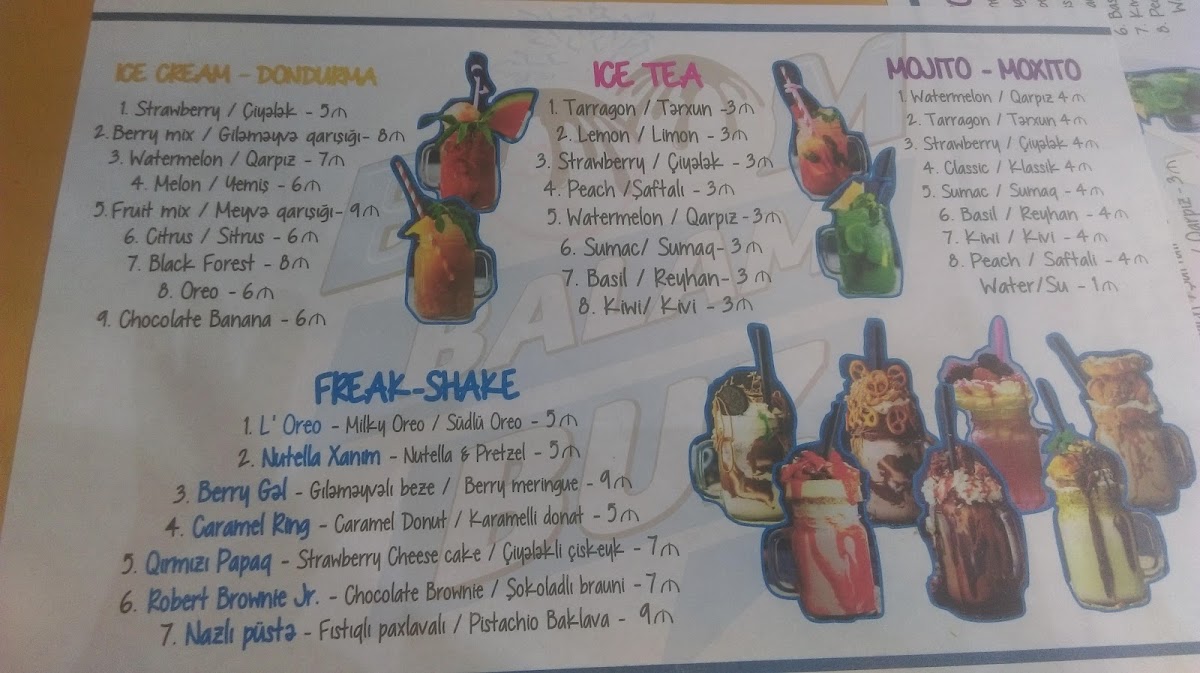 ICE CREAM - DONDURMA
1. Strawberry / Çiyələk - 5₼
2. Berry mix / Giləmeyvə qarışığı - 8₼
3. Watermelon / Qarpız - 7₼
4. Melon / Yemiş - 6₼
5. Fruit mix / Meyvə qarışığı - 9₼
6. Citrus / Sitrus - 6₼
7. Black Forest - 8₼
8. Oreo - 6₼
9. Chocolate Banana - 6₼
ICE TEA
1. Tarragon / Tərxun - 3₼
2. Lemon / Limon - 3₼
3. Strawberry / Çiyələk - 3₼
4. Peach / Şaftalı - 3₼
5. Watermelon / Qarpız - 3₼
6. Sumac/ Sumaq - 3₼
7. Basil / Reyhan - 3₼
8. Kiwi/ Kivi - 3₼
MOJITO - MOXITO
1. Watermelon / Qarpız 4₼
2. Tarragon / Tərxun 4₼
3. Strawberry / Çiyələk 4₼
4. Classic / Klassik 4₼
5. Sumac / Sumaq - 4₼
6. Basil / Reyhan - 4₼
7. Kiwi / Kivi - 4₼
8. Peach / Saftali - 4₼
Water/Su - 1₼
FREAK-SHAKE
1. L' Oreo - Milky Oreo / Südlü Oreo - 5₼
2. Nutella Xanım - Nutella & Pretzel - 5₼
3. Berry Gəl - Giləmeyvəli beze / Berry meringue - 9₼
4. Caramel Ring - Caramel Donut / Karamelli donat - 5₼
5. Qırmızı Papaq - Strawberry Cheese cake / Çiyələkli çiskeyk - 7₼
6. Robert Brownie Jr. - Chocolate Brownie / Şokoladlı brauni - 7₼
7. Nazlı püstə - Fıstıqlı paxlavalı / Pistachio Baklava - 9₼
BALAM
BUZ
Qarpız - 3₼